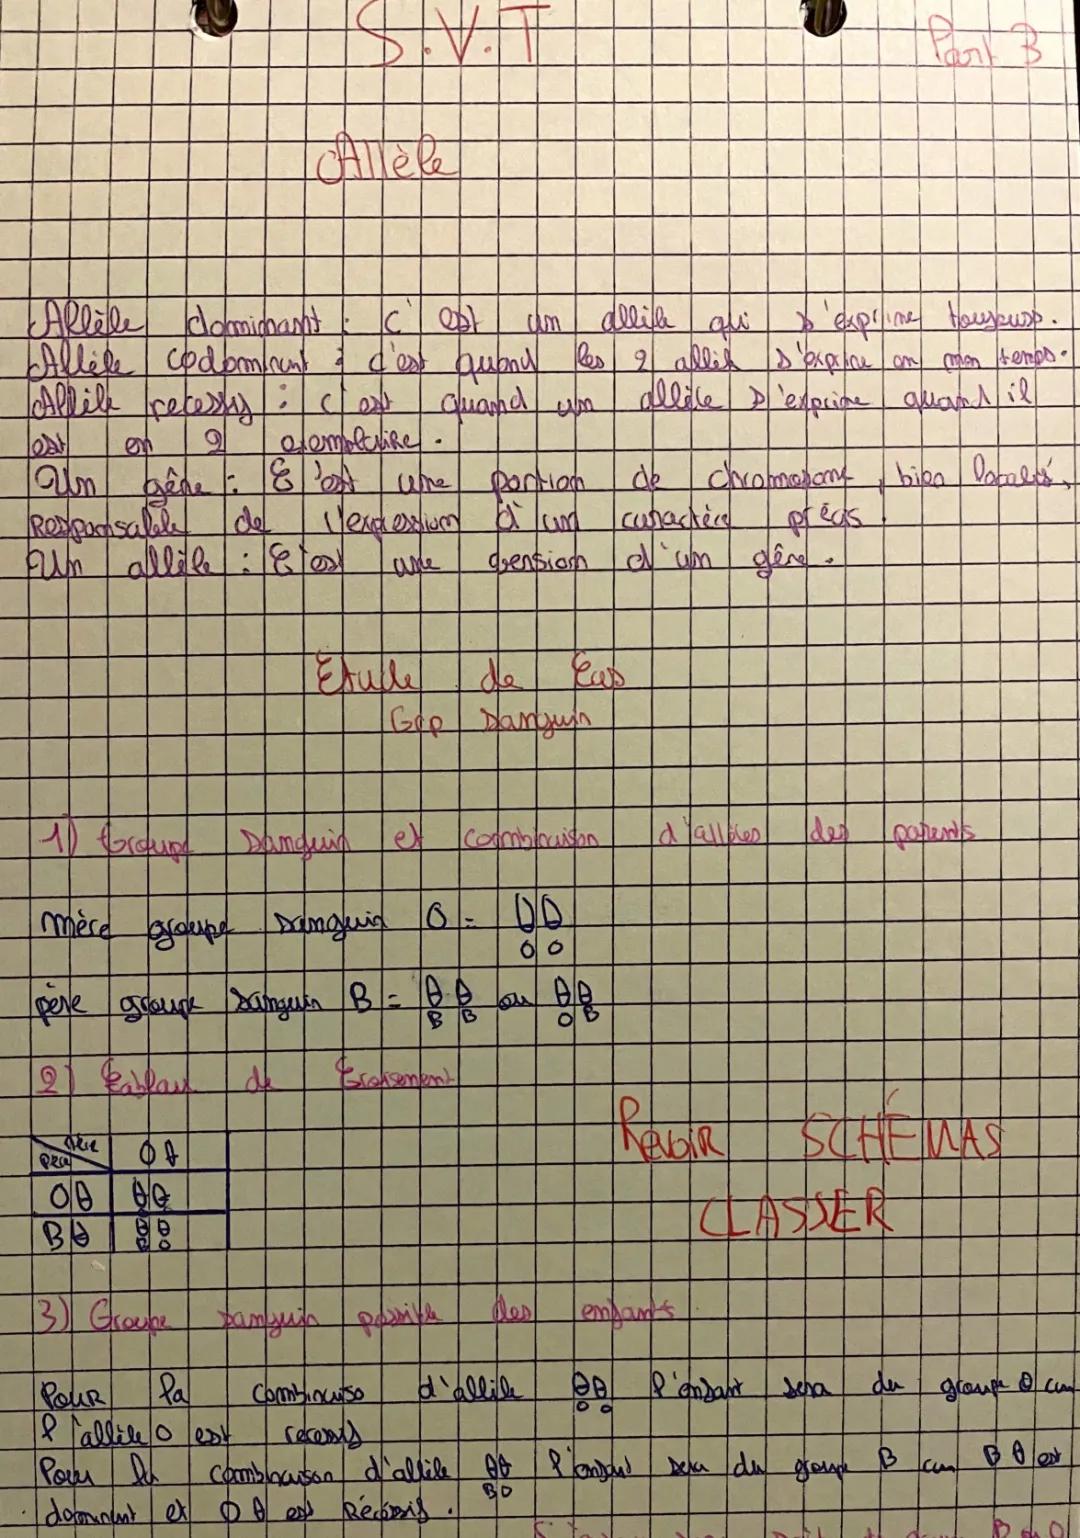 S.V.T
Part 3
Allèle
Allèle dominant : c'est um allèle qui s'exprime toujours.
Allèle codominant : c'est quand les 2 allèl s'exprine en mem temps.
Allèle recessif : c'est quand um allèle s'exprime quand il
est en 2 exemplaire.
Un gêne : C'est une portion de chromosome, bien localisé,
Responsable de l'expression d'un caractère précis
Un allèle : C'est une version d'un gêne.
Etude de Cas
Grp Sanguin
1) Groupe Sanguin et Combinaison d'allèles des parents
Mère groupe Sanguin O =
O O
père groupe Sanguin B = ou
B B O B
2) Tableau de Croisement
Revoir SCHÉMAS
CLASSER
Mère
Père
O
B
3) Groupe sanguin possible des enfants
Pour la Combinaiso d'allèle l'enfant sera du groupe O car
O O
l'allèle O est recessif
Pour la Combinaison d'allèle l'enfant sera du groupe B car B est
B O
dominant et O est Récessif.